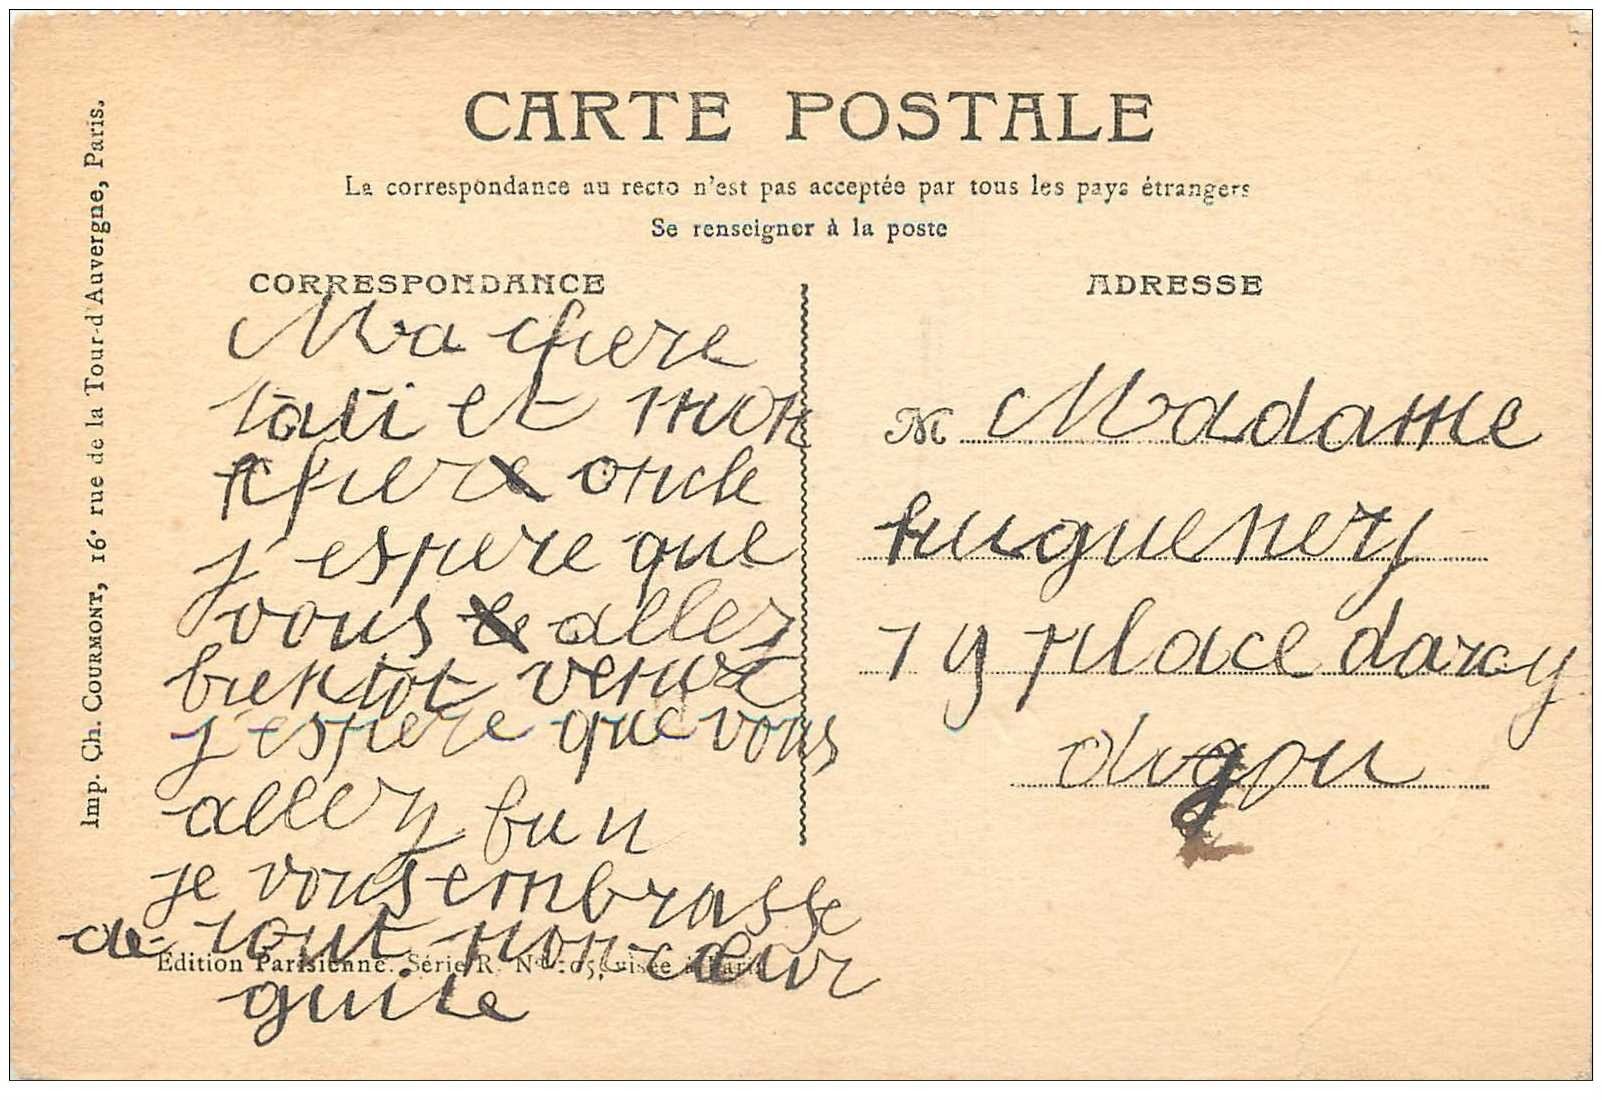 CARTE POSTALE
La correspondance au recto n'est pas acceptée par tous les pays étrangers
Se renseigner à la poste
CORRESPONDANCE
Ma chere
tati et mon
chere oncle
j'espere que
vous allez
bientot venir
j'espere que vous
allez bien
je vous embrasse
de tout mon cœur
guite
ADRESSE
M Madame
huguenery
19 place darcy
dijon
Imp. Ch. COURMONT, 16 rue de la Tour-d'Auvergne, Paris.
Edition Parisienne. Série R. visée à Paris